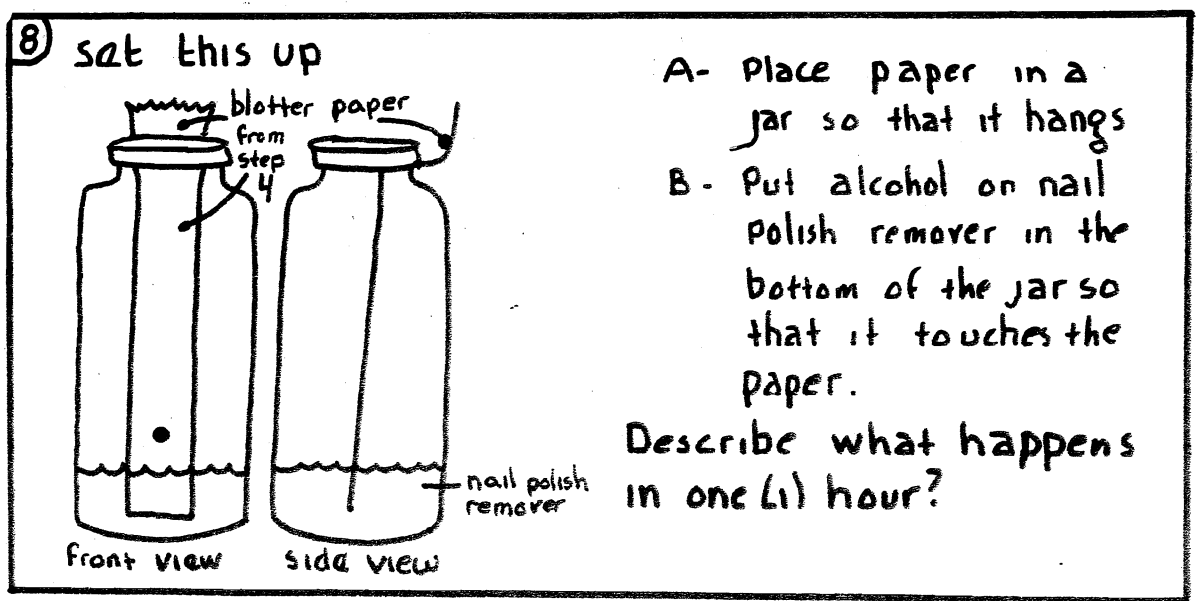 8 set this up
blotter paper
from
step
4
nail polish
remover
front view
side view
A- Place paper in a
jar so that it hangs
B- Put alcohol on nail
polish remover in the
bottom of the jar so
that it touches the
paper.
Describe what happens
in one (1) hour?